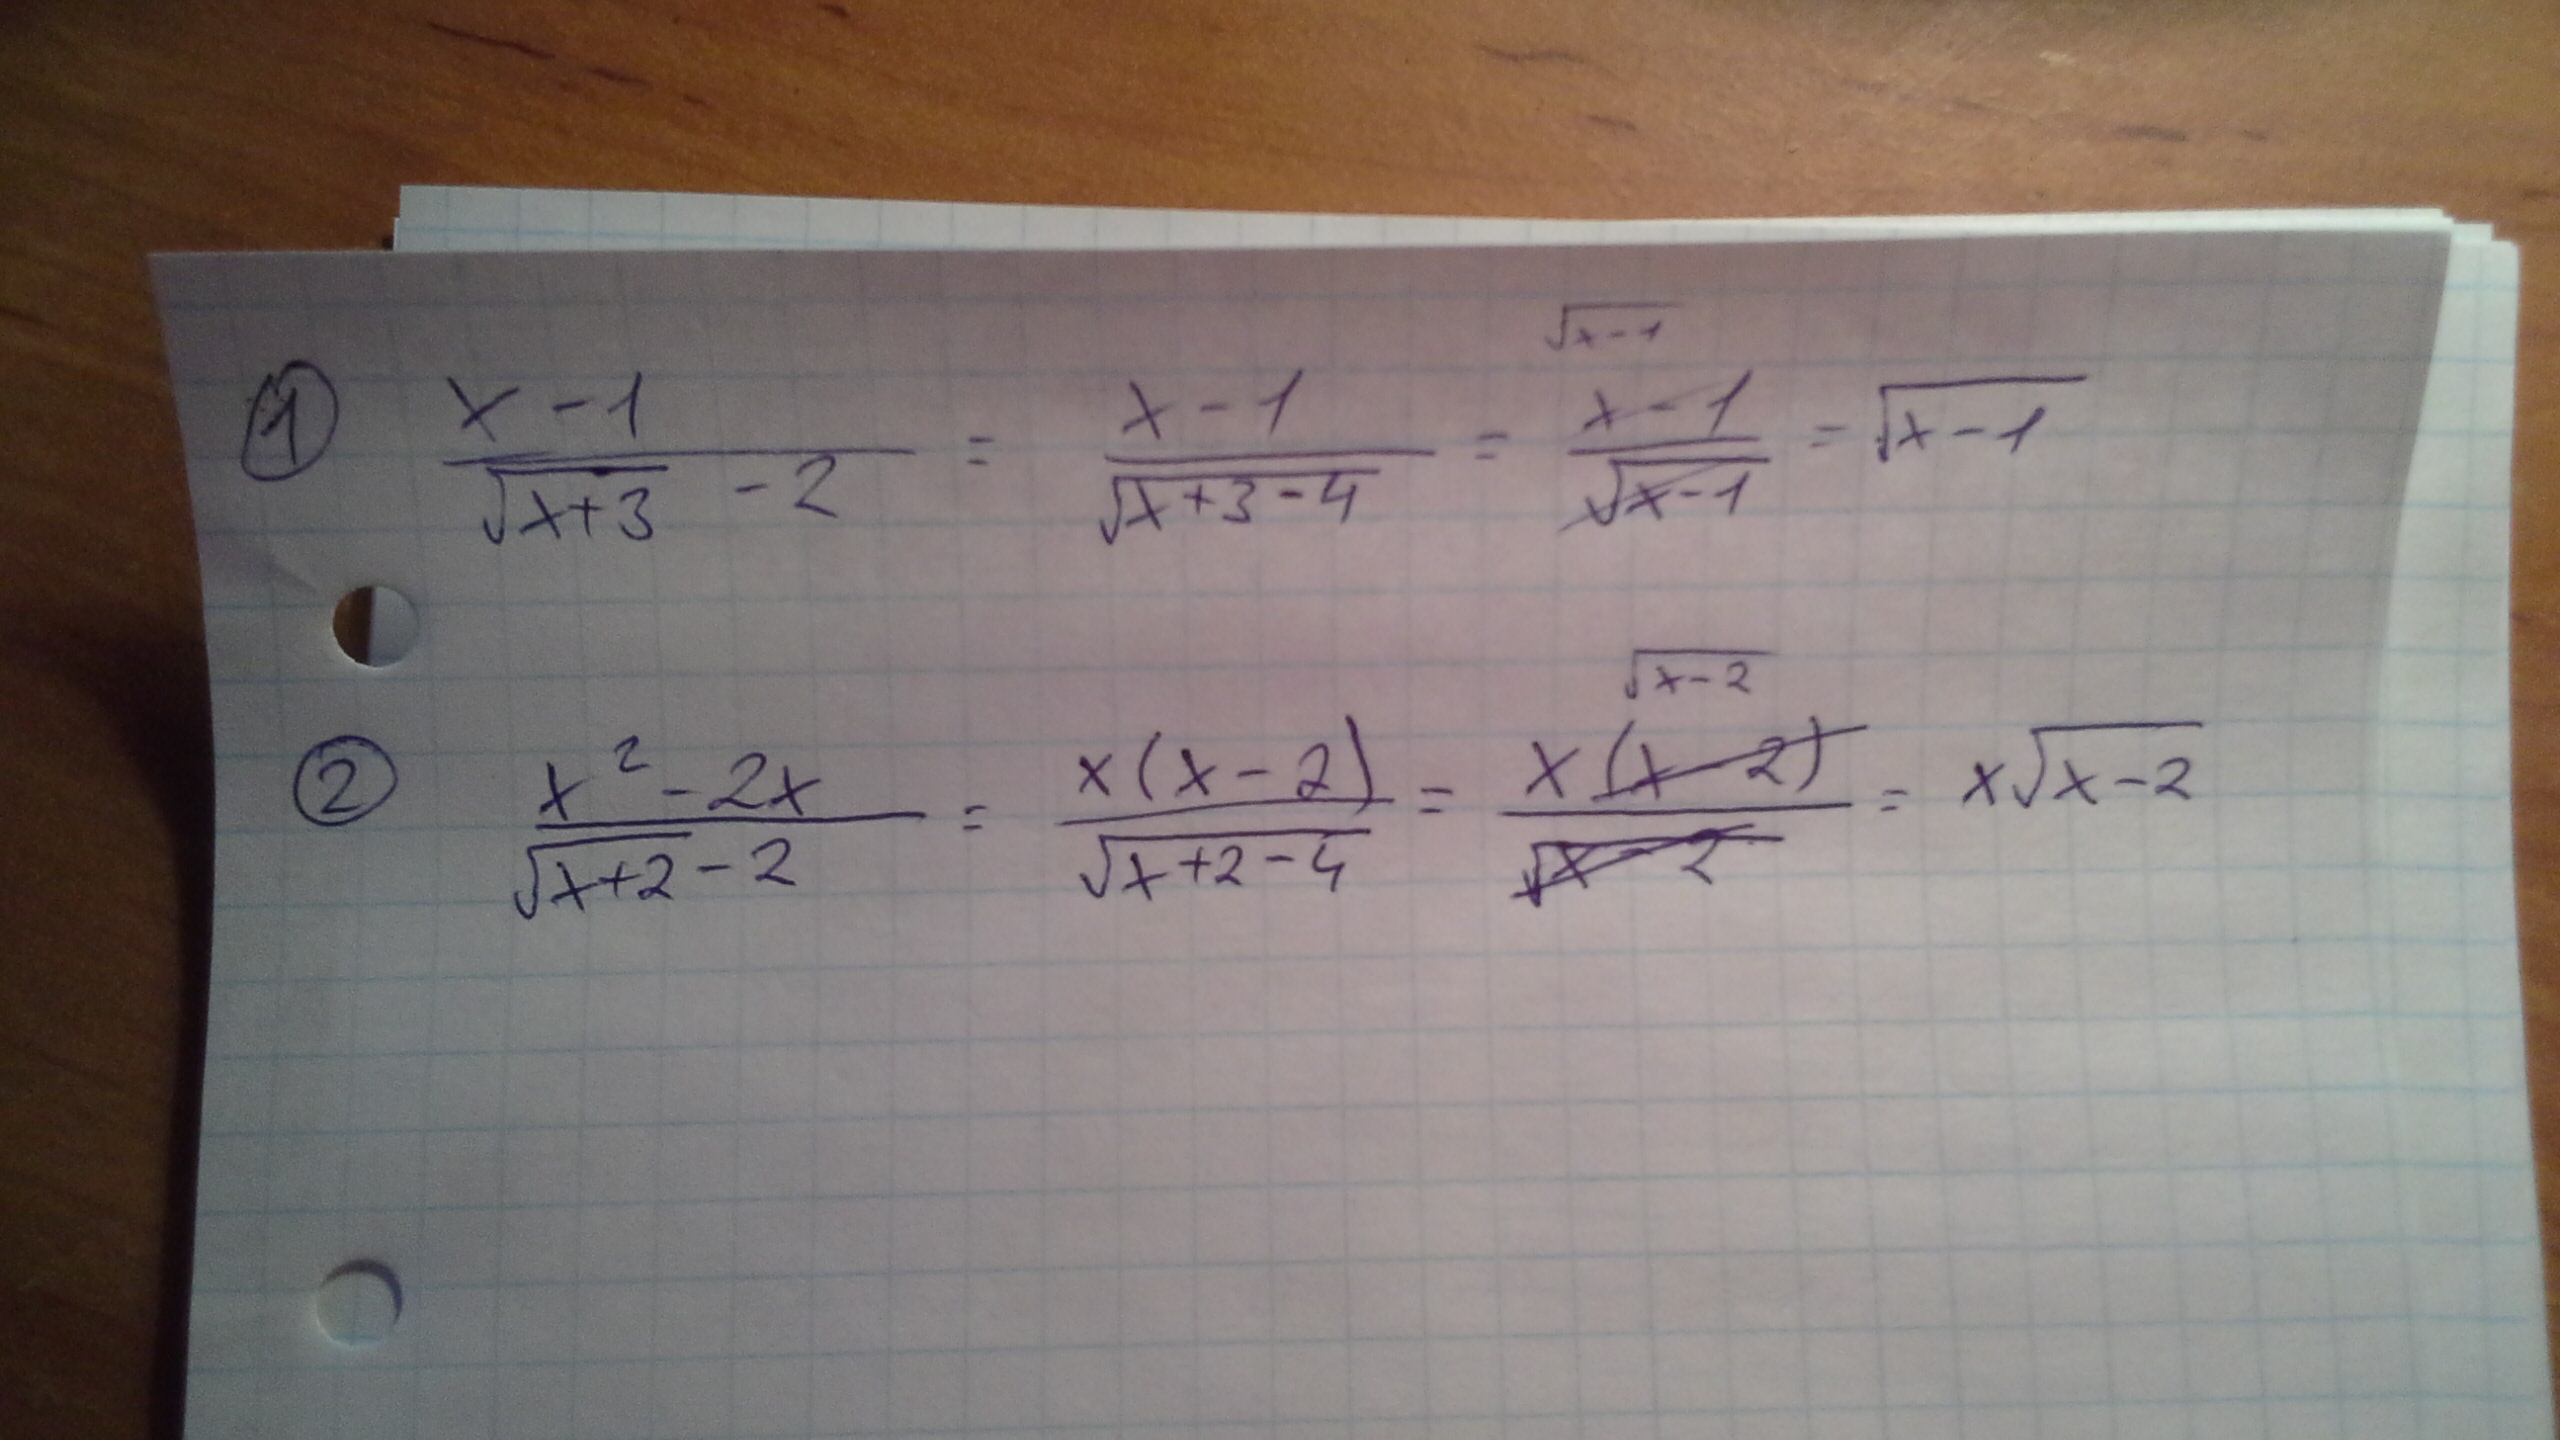 ① (x-1)/(√(x+3) - 2) = (x-1)/√(x+3-4) = √(x-1) (x-1)/√(x-1) = √(x-1)
② (x²-2x)/(√(x+2) - 2) = x(x-2)/√(x+2-4) = √(x-2) x(x-2)/√(x-2) = x√(x-2)